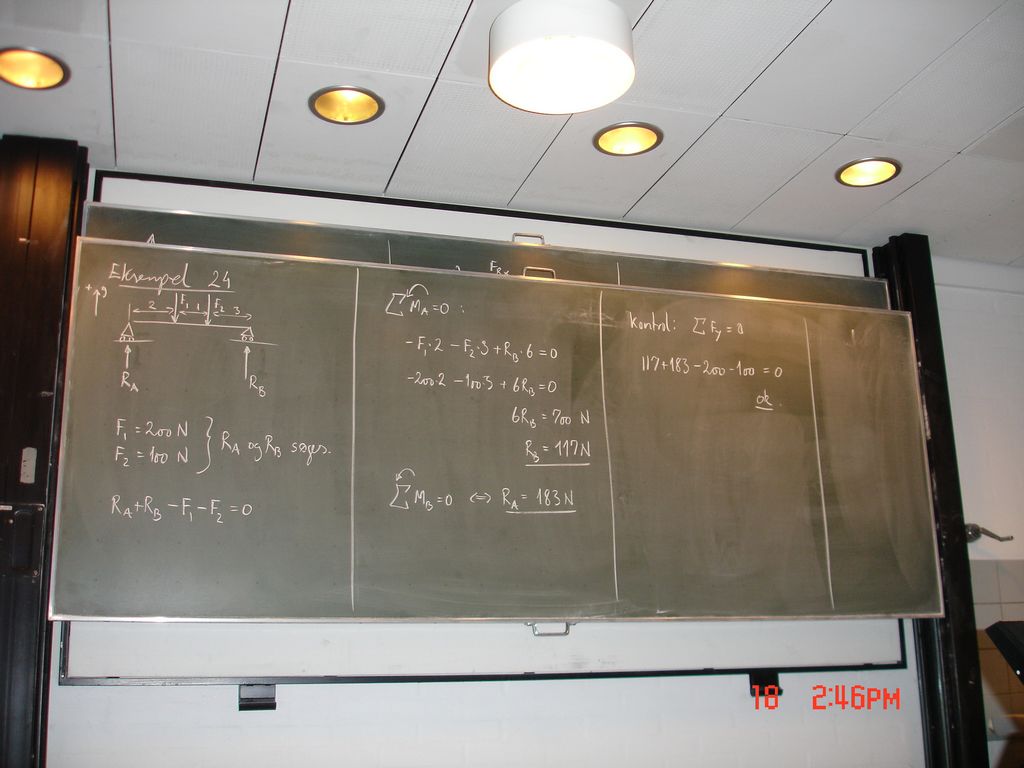 Eksempel 24
+ y
2 F₁ 1 F₂ 3
R_A R_B
F₁ = 200 N
F₂ = 100 N
} R_A og R_B søges.
R_A + R_B - F₁ - F₂ = 0
F_Bx
∑ M_A = 0 :
-F₁·2 - F₂·3 + R_B·6 = 0
-200·2 - 100·3 + 6R_B = 0
6R_B = 700 N
R_B = 117 N
∑ M_B = 0 ⇔ R_A = 183 N
kontrol: ∑ F_y = 0
117+183-200-100 = 0
ok.
18 2:46PM